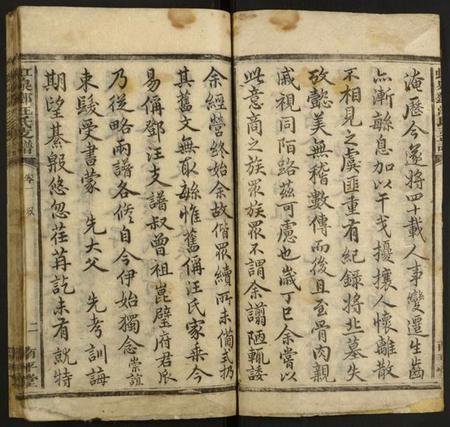 淹歷今遂將四十載人事變遷生齒
亦漸緜息加以干戈擾攘人懷離散
不相見之虞匪重有紀錄將丘墓失
攷懿美無稽數傳而後且至骨肉親
戚視同陌路茲可慮也歲丁巳余嘗以
此意商之族眾族眾不謂余謭陋輒諉
余經營終始余故偕眾續所未備式扔
其舊文無敢緣惟舊偁汪氏家乘今
易偁鄧汪支譜叔曾祖崑璧府君派
乃從略兩譜各修自今伊始獨念崇誼
束髮受書蒙 先大父 先考訓誨
期望綦殷悠忽荏苒訖未有就特
汪氏支譜
卷首
二